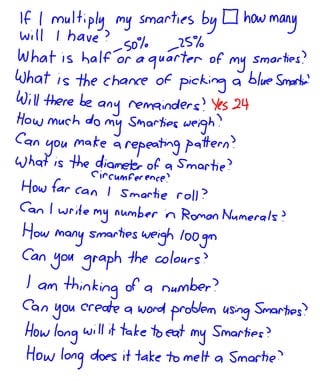 If I multiply my smarties by □ how many
will I have?
50% 25%
What is half or a quarter of my smarties?
What is the chance of picking a blue Smartie?
Will there be any remainders? Yes 24
How much do my Smarties weigh?
Can you make a repeating pattern?
What is the diameter of a Smartie?
Circumference?
How far can 1 Smartie roll?
Can I write my number in Roman Numerals?
How many smarties weigh 100gm
Can you graph the colours?
I am thinking of a number?
Can you create a word problem using Smarties?
How long will it take to eat my Smarties?
How long does it take to melt a Smartie?